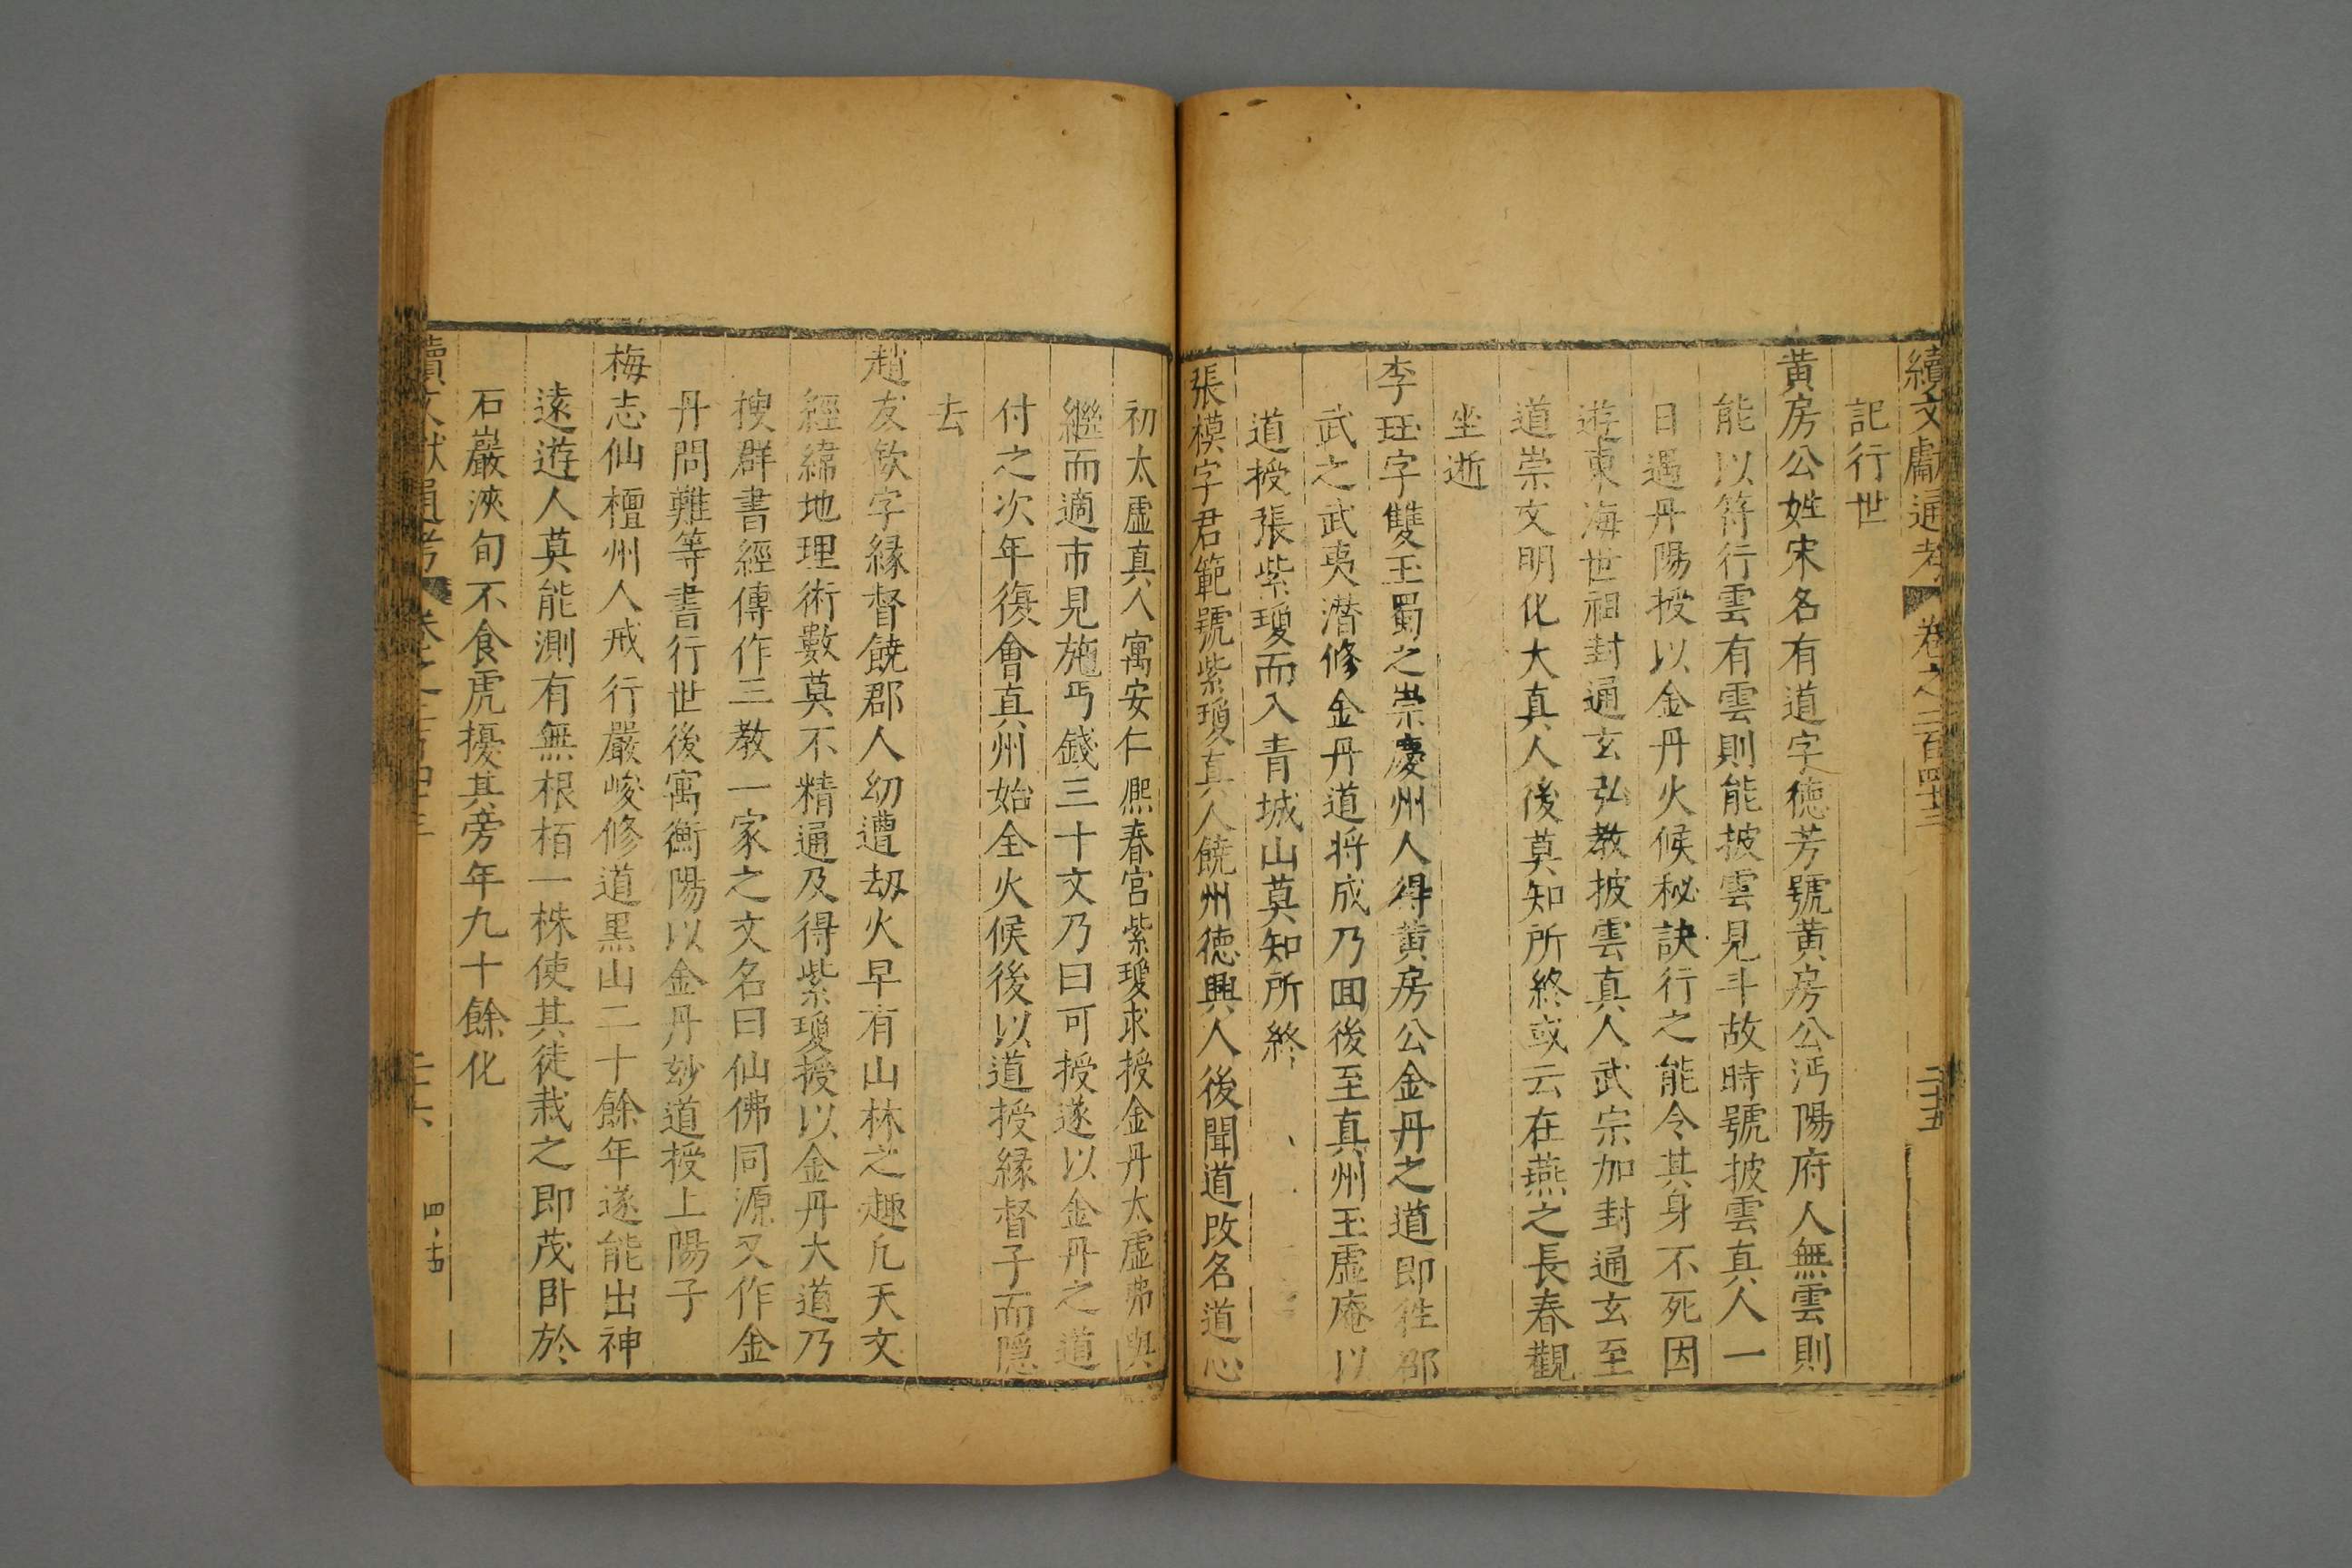 續文獻通考 卷之二百四十三 二十五
記行世
黃房公姓宋名有道字德芳號黃房公沔陽府人無雲則
能以符行雲有雲則能披雲見斗故時號披雲真人一
日遇丹陽授以金丹火候秘訣行之能令其身不死因
遊東海世祖封通玄弘教披雲真人武宗加封通玄至
道崇文明化大真人後莫知所終或云在燕之長春觀
坐逝
李珏字雙玉蜀之崇慶州人得黃房公金丹之道即徃邵
武之武夷潛修金丹道將成乃囬後至真州玉虛庵以
道授張紫瓊而入青城山莫知所終
張模字君範號紫瓊真人饒州德興人後聞道改名道心
初太虛真人寓安仁熈春宮紫瓊求授金丹太虛弗與
繼而適市見施丐錢三十文乃曰可授遂以金丹之道
付之次年復會真州始全火候後以道授緣督子而隱
去
趙友欽字緣督饒郡人幼遭刼火早有山林之趣凡天文
經緯地理術數莫不精通及得紫瓊授以金丹大道乃
搜群書經傳作三教一家之文名曰仙佛同源又作金
丹問難等書行世後寓衡陽以金丹玅道授上陽子
梅志仙檀州人戒行嚴峻修道黑山二十餘年遂能出神
遠遊人莫能測有無根栢一株使其徒栽之即茂卧於
石巖浹旬不食虎擾其旁年九十餘化
續文獻通考 卷之二百四十三 二十六 四·十五